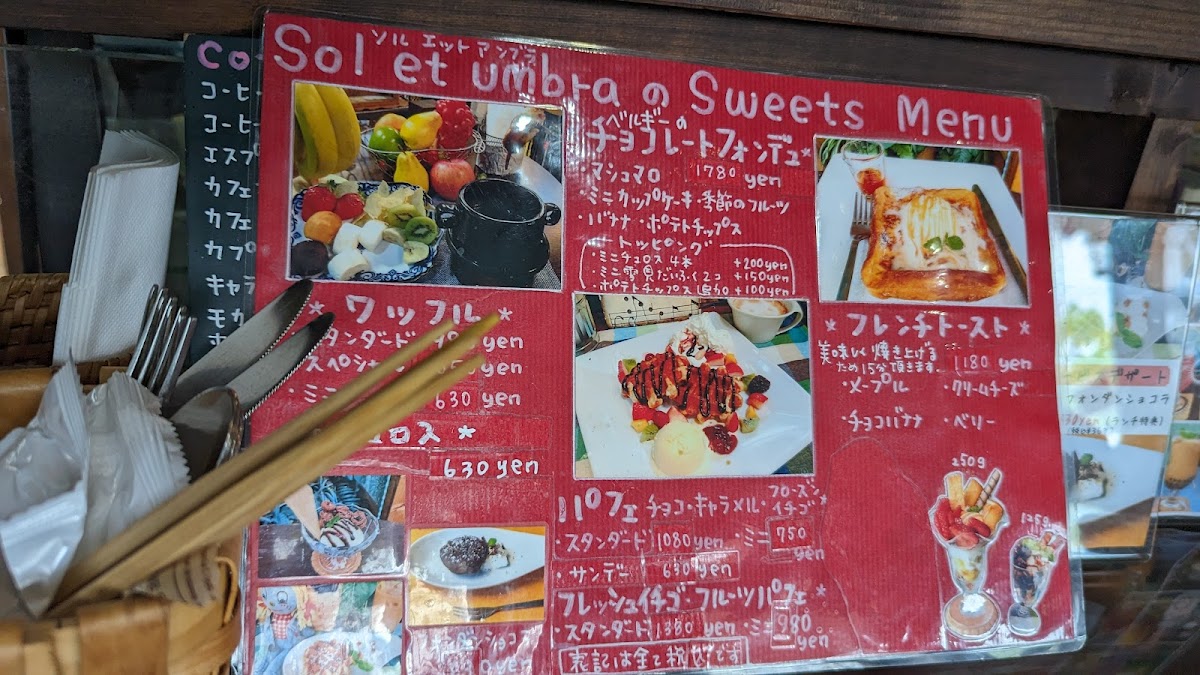 ソル エット アンブラ
Sol et umbra の Sweets Menu
ベルギーの
チョコレートフォンデュ*
マシュマロ 1780 yen
ミニカップケーキ・季節のフルーツ
・バナナ・ポテトチップス
トッピング
・ミニチュロス 4本 +200yen
・ミニ雪見だいふく2コ +150yen
・ポテトチップス 追加 +100yen
* ワッフル *
yen
・ミニ 630 yen
ュロス *
630 yen
* フレンチトースト *
美味しく焼き上げる
ため15分頂きます。 1180 yen
・メープル ・クリームチーズ
・チョコバナナ ・ベリー
パフェ チョコ・キャラメル・フローズンイチゴ*
・スタンダード 1080 yen ・ミニ 750 yen
・サンデー 630 yen
フレッシュイチゴ・フルーツパフェ *
・スタンダード 1380 yen ・ミニ 980 yen
表記は全て税込です
250g
125g
Co
コーヒ
コーヒ
エスプ
カフェ
カフェ
カプ
キャラ
モカ
デザート
フォンダンショコラ
(ランチ特典)